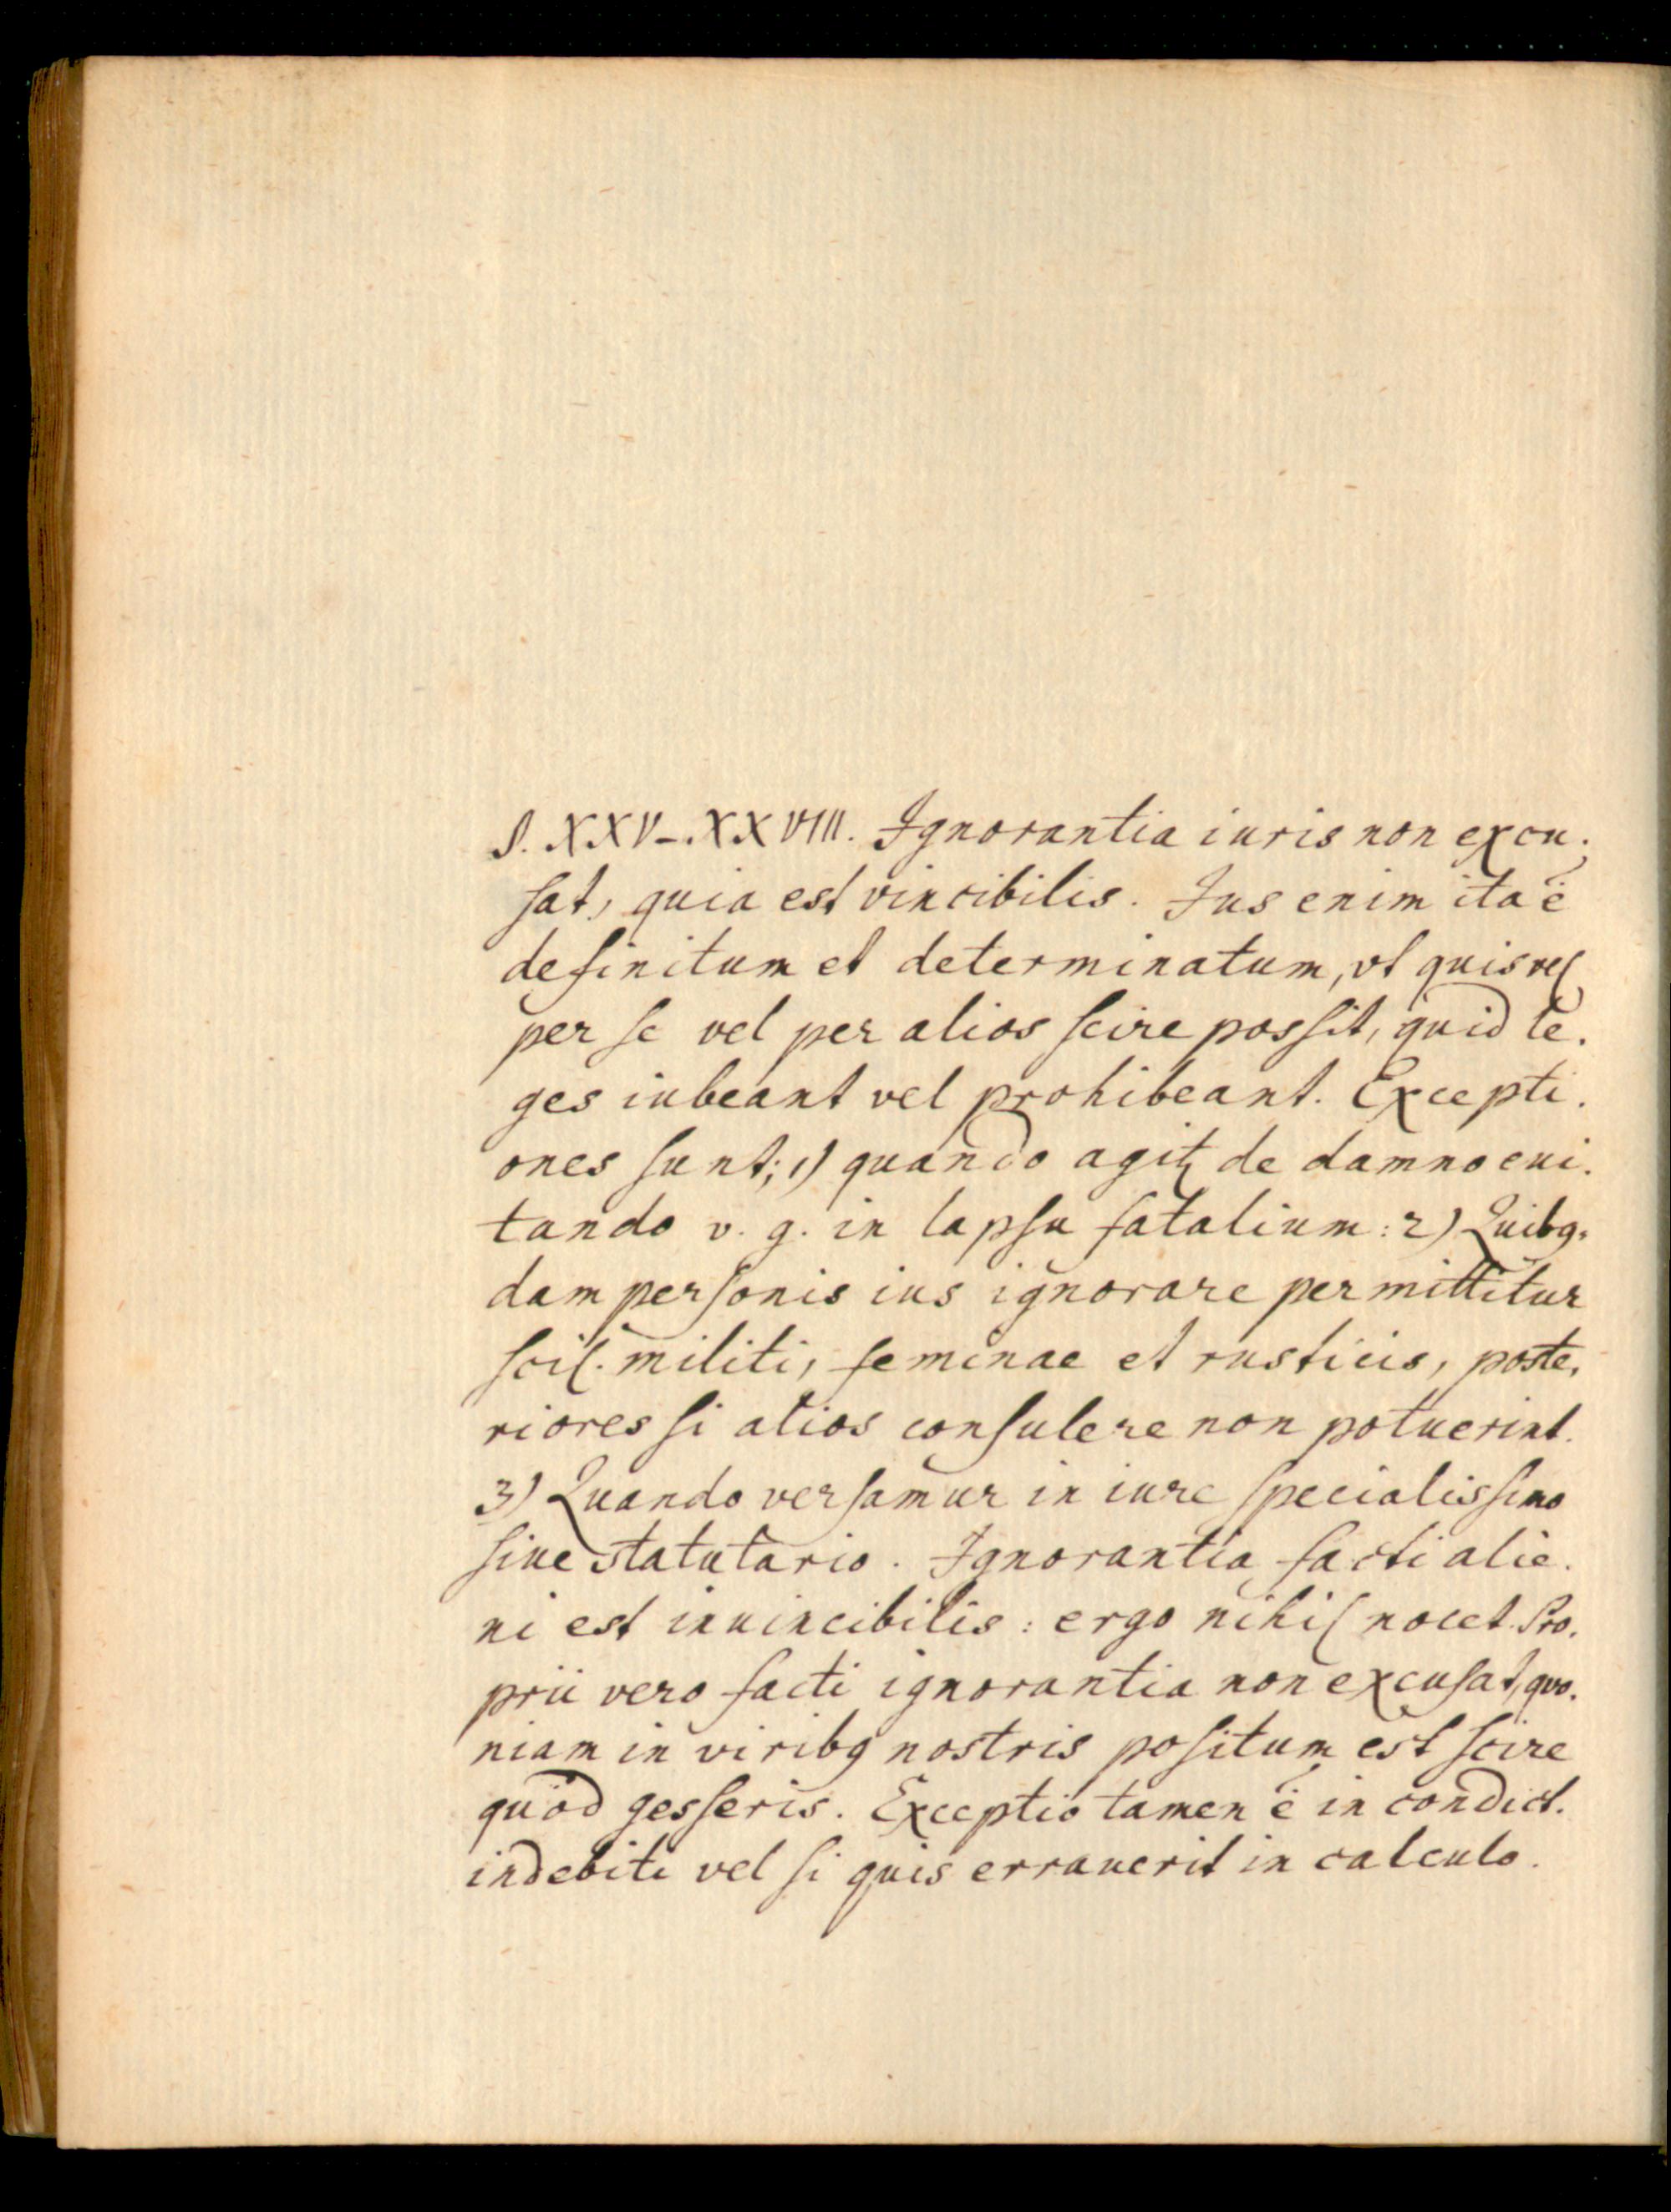 §. XXV–XXVIII. Ignorantia iuris non excu.
sat, quia est vincibilis. Ius enim ita ē
definitum et determinatum, vt quis vel
per se vel per alios scire possit, quid le.
ges iubeant vel prohibeant. Excepti.
ones sunt; 1) quando agitꝛ de damno eui.
tando v. g. in lapsu fatalium: 2) Quibꝯ.
dam personis ius ignorare permittitur
scil. militi, feminae et rusticis, poste.
riores si alios consulere non potuerint.
3) Quando versamur in iure specialissimo
siue statutario. Ignorantia facti alie.
ni est inuincibilis: ergo nihil nocet. Pro.
prii vero facti ignorantia non excusat, quo.
niam in viribꝯ nostris positum est scire
quod gesseris. Exceptio tamen ē in condict.
indebiti vel si quis errauerit in calculo.